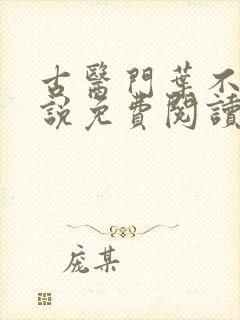 古醫門葉不
說免費閱讀
庞某